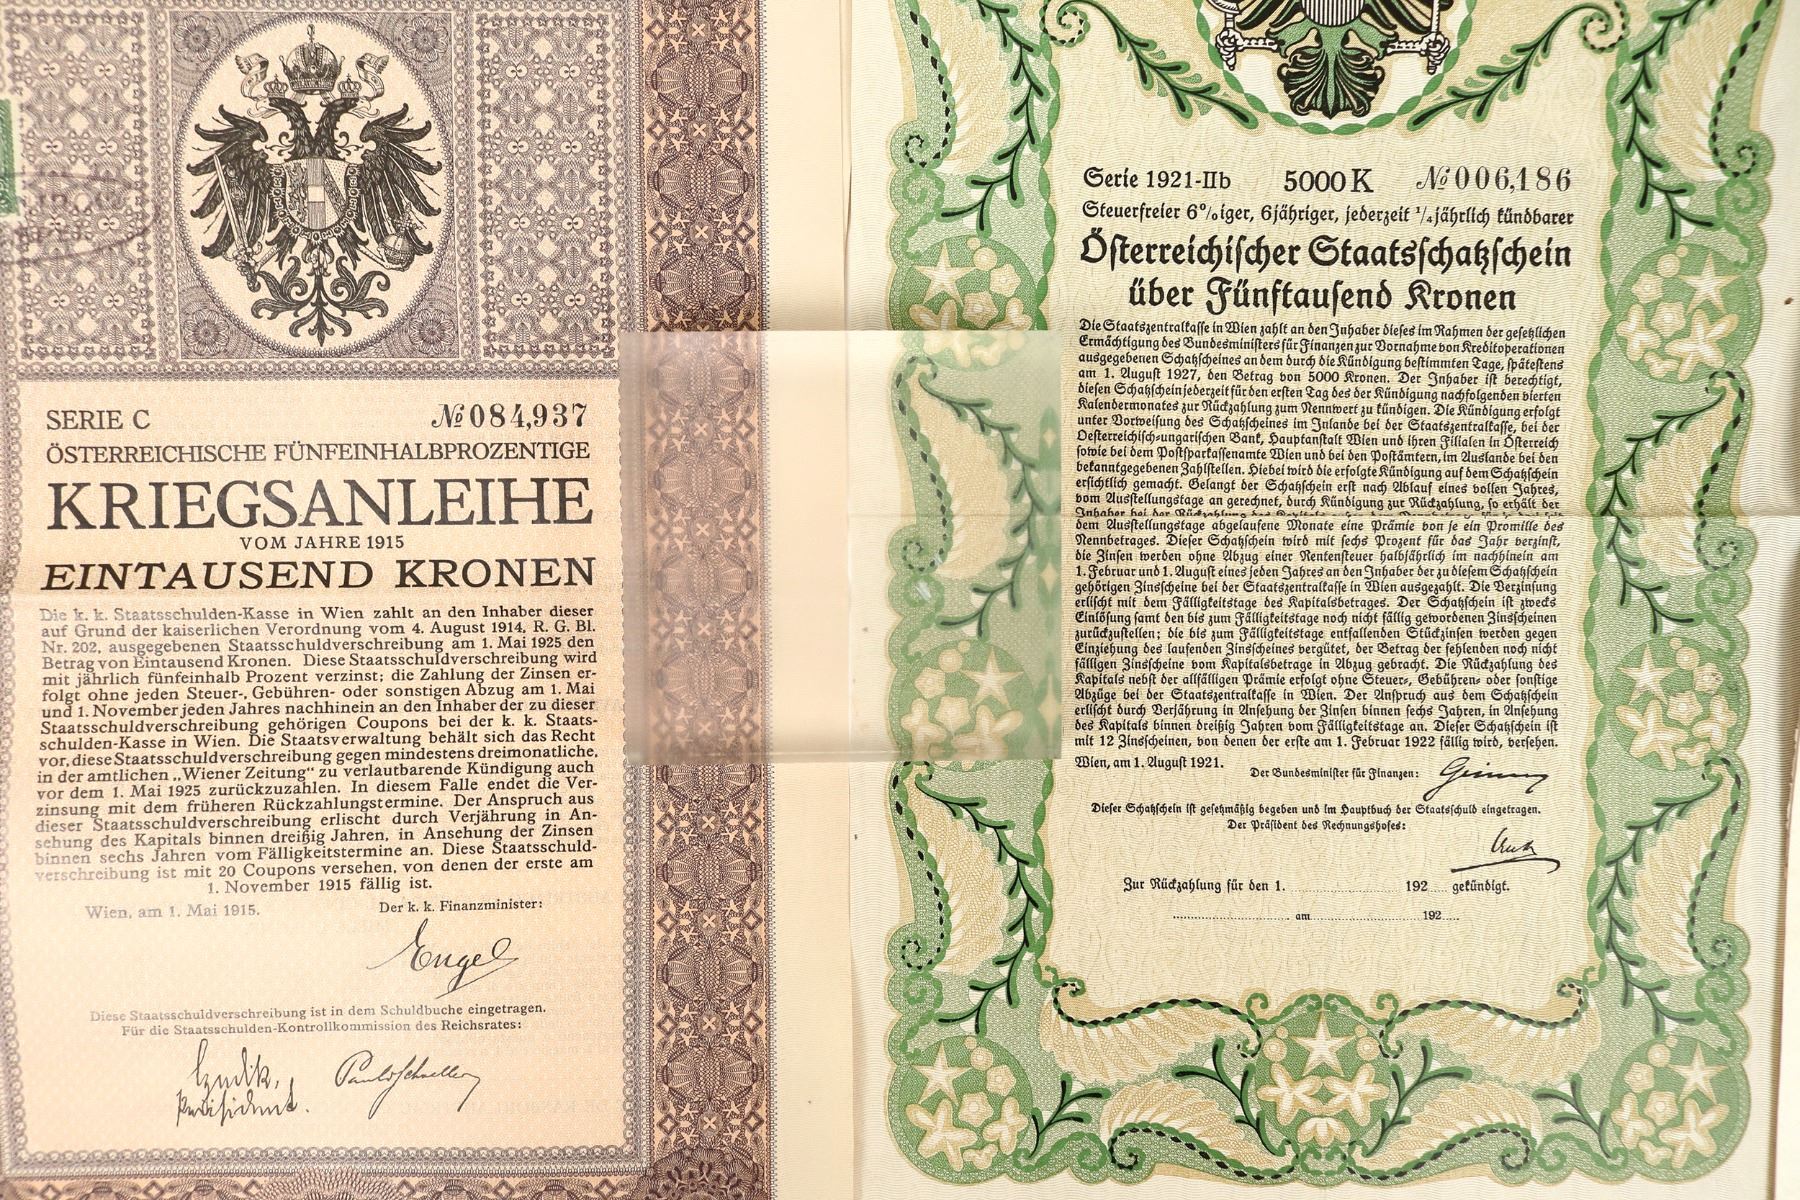 SERIE C № 084,937
ÖSTERREICHISCHE FÜNFEINHALBPROZENTIGE
KRIEGSANLEIHE
VOM JAHRE 1915
EINTAUSEND KRONEN
Die k. k. Staatsschulden-Kasse in Wien zahlt an den Inhaber dieser
auf Grund der kaiserlichen Verordnung vom 4. August 1914, R. G. Bl.
Nr. 202, ausgegebenen Staatsschuldverschreibung am 1. Mai 1925 den
Betrag von Eintausend Kronen. Diese Staatsschuldverschreibung wird
mit jährlich fünfeinhalb Prozent verzinst; die Zahlung der Zinsen er-
folgt ohne jeden Steuer-, Gebühren- oder sonstigen Abzug am 1. Mai
und 1. November jeden Jahres nachhinein an den Inhaber der zu dieser
Staatsschuldverschreibung gehörigen Coupons bei der k. k. Staats-
schulden-Kasse in Wien. Die Staatsverwaltung behält sich das Recht
vor, diese Staatsschuldverschreibung gegen mindestens dreimonatliche,
in der amtlichen „Wiener Zeitung“ zu verlautbarende Kündigung auch
vor dem 1. Mai 1925 zurückzuzahlen. In diesem Falle endet die Ver-
zinsung mit dem früheren Rückzahlungstermine. Der Anspruch aus
dieser Staatsschuldverschreibung erlischt durch Verjährung in An-
sehung des Kapitals binnen dreißig Jahren, in Ansehung der Zinsen
binnen sechs Jahren vom Fälligkeitstermine an. Diese Staatsschuld-
verschreibung ist mit 20 Coupons versehen, von denen der erste am
1. November 1915 fällig ist.
Wien, am 1. Mai 1915. Der k. k. Finanzminister:
Engel
Diese Staatsschuldverschreibung ist in dem Schuldbuche eingetragen.
Für die Staatsschulden-Kontrollkommission des Reichsrates:
Präsident.
Serie 1921-IIb 5000 K № 006,186
Steuerfreier 6%iger, 6jähriger, jederzeit 1/4jährlich kündbarer
Österreichischer Staatsschatzschein
über Fünftausend Kronen
Die Staatszentralkasse in Wien zahlt an den Inhaber dieses im Rahmen der gesetzlichen
Ermächtigung des Bundesministers für Finanzen zur Vornahme von Kreditoperationen
ausgegebenen Schatzscheines an dem durch die Kündigung bestimmten Tage, spätestens
am 1. August 1927, den Betrag von 5000 Kronen. Der Inhaber ist berechtigt,
diesen Schatzschein jederzeit für den ersten Tag des der Kündigung nachfolgenden vierten
Kalendermonates zur Rückzahlung zum Nennwert zu kündigen. Die Kündigung erfolgt
unter Vorweisung des Schatzscheines im Inlande bei der Staatszentralkasse, bei der
Oesterreichisch-ungarischen Bank, Hauptanstalt Wien und ihren Filialen in Österreich
sowie bei dem Postsparkassenamte Wien und bei den Postämtern, im Auslande bei den
bekanntgegebenen Zahlstellen. Hiebei wird die erfolgte Kündigung auf dem Schatzschein
ersichtlich gemacht. Gelangt der Schatzschein erst nach Ablauf eines vollen Jahres,
vom Ausstellungstage an gerechnet, durch Kündigung zur Rückzahlung, so erhält der
Inhaber bei der Rückzahlung des Kapitals
dem Ausstellungstage abgelaufene Monate eine Prämie von je ein Promille des
Nennbetrages. Dieser Schatzschein wird mit sechs Prozent für das Jahr verzinst,
die Zinsen werden ohne Abzug einer Rentensteuer halbjährlich im nachhinein am
1. Februar und 1. August eines jeden Jahres an den Inhaber der zu diesem Schatzschein
gehörigen Zinsscheine bei der Staatszentralkasse in Wien ausgezahlt. Die Verzinsung
erlischt mit dem Fälligkeitstage des Kapitalsbetrages. Der Schatzschein ist zwecks
Einlösung samt den bis zum Fälligkeitstage noch nicht fällig gewordenen Zinsscheinen
zurückzustellen; die bis zum Fälligkeitstage entfallenden Stückzinsen werden gegen
Einziehung des laufenden Zinsscheines vergütet, der Betrag der fehlenden noch nicht
fälligen Zinsscheine vom Kapitalsbetrage in Abzug gebracht. Die Rückzahlung des
Kapitals nebst der allfälligen Prämie erfolgt ohne Steuer-, Gebühren- oder sonstige
Abzüge bei der Staatszentralkasse in Wien. Der Anspruch aus dem Schatzschein
erlischt durch Verjährung in Ansehung der Zinsen binnen sechs Jahren, in Ansehung
des Kapitals binnen dreißig Jahren vom Fälligkeitstage an. Dieser Schatzschein ist
mit 12 Zinsscheinen, von denen der erste am 1. Februar 1922 fällig wird, versehen.
Wien, am 1. August 1921.
Der Bundesminister für Finanzen:
Dieser Schatzschein ist gesetzmäßig begeben und im Hauptbuch der Staatsschuld eingetragen.
Der Präsident des Rechnungshofes:
Zur Rückzahlung für den 1. 192 gekündigt.
am 192